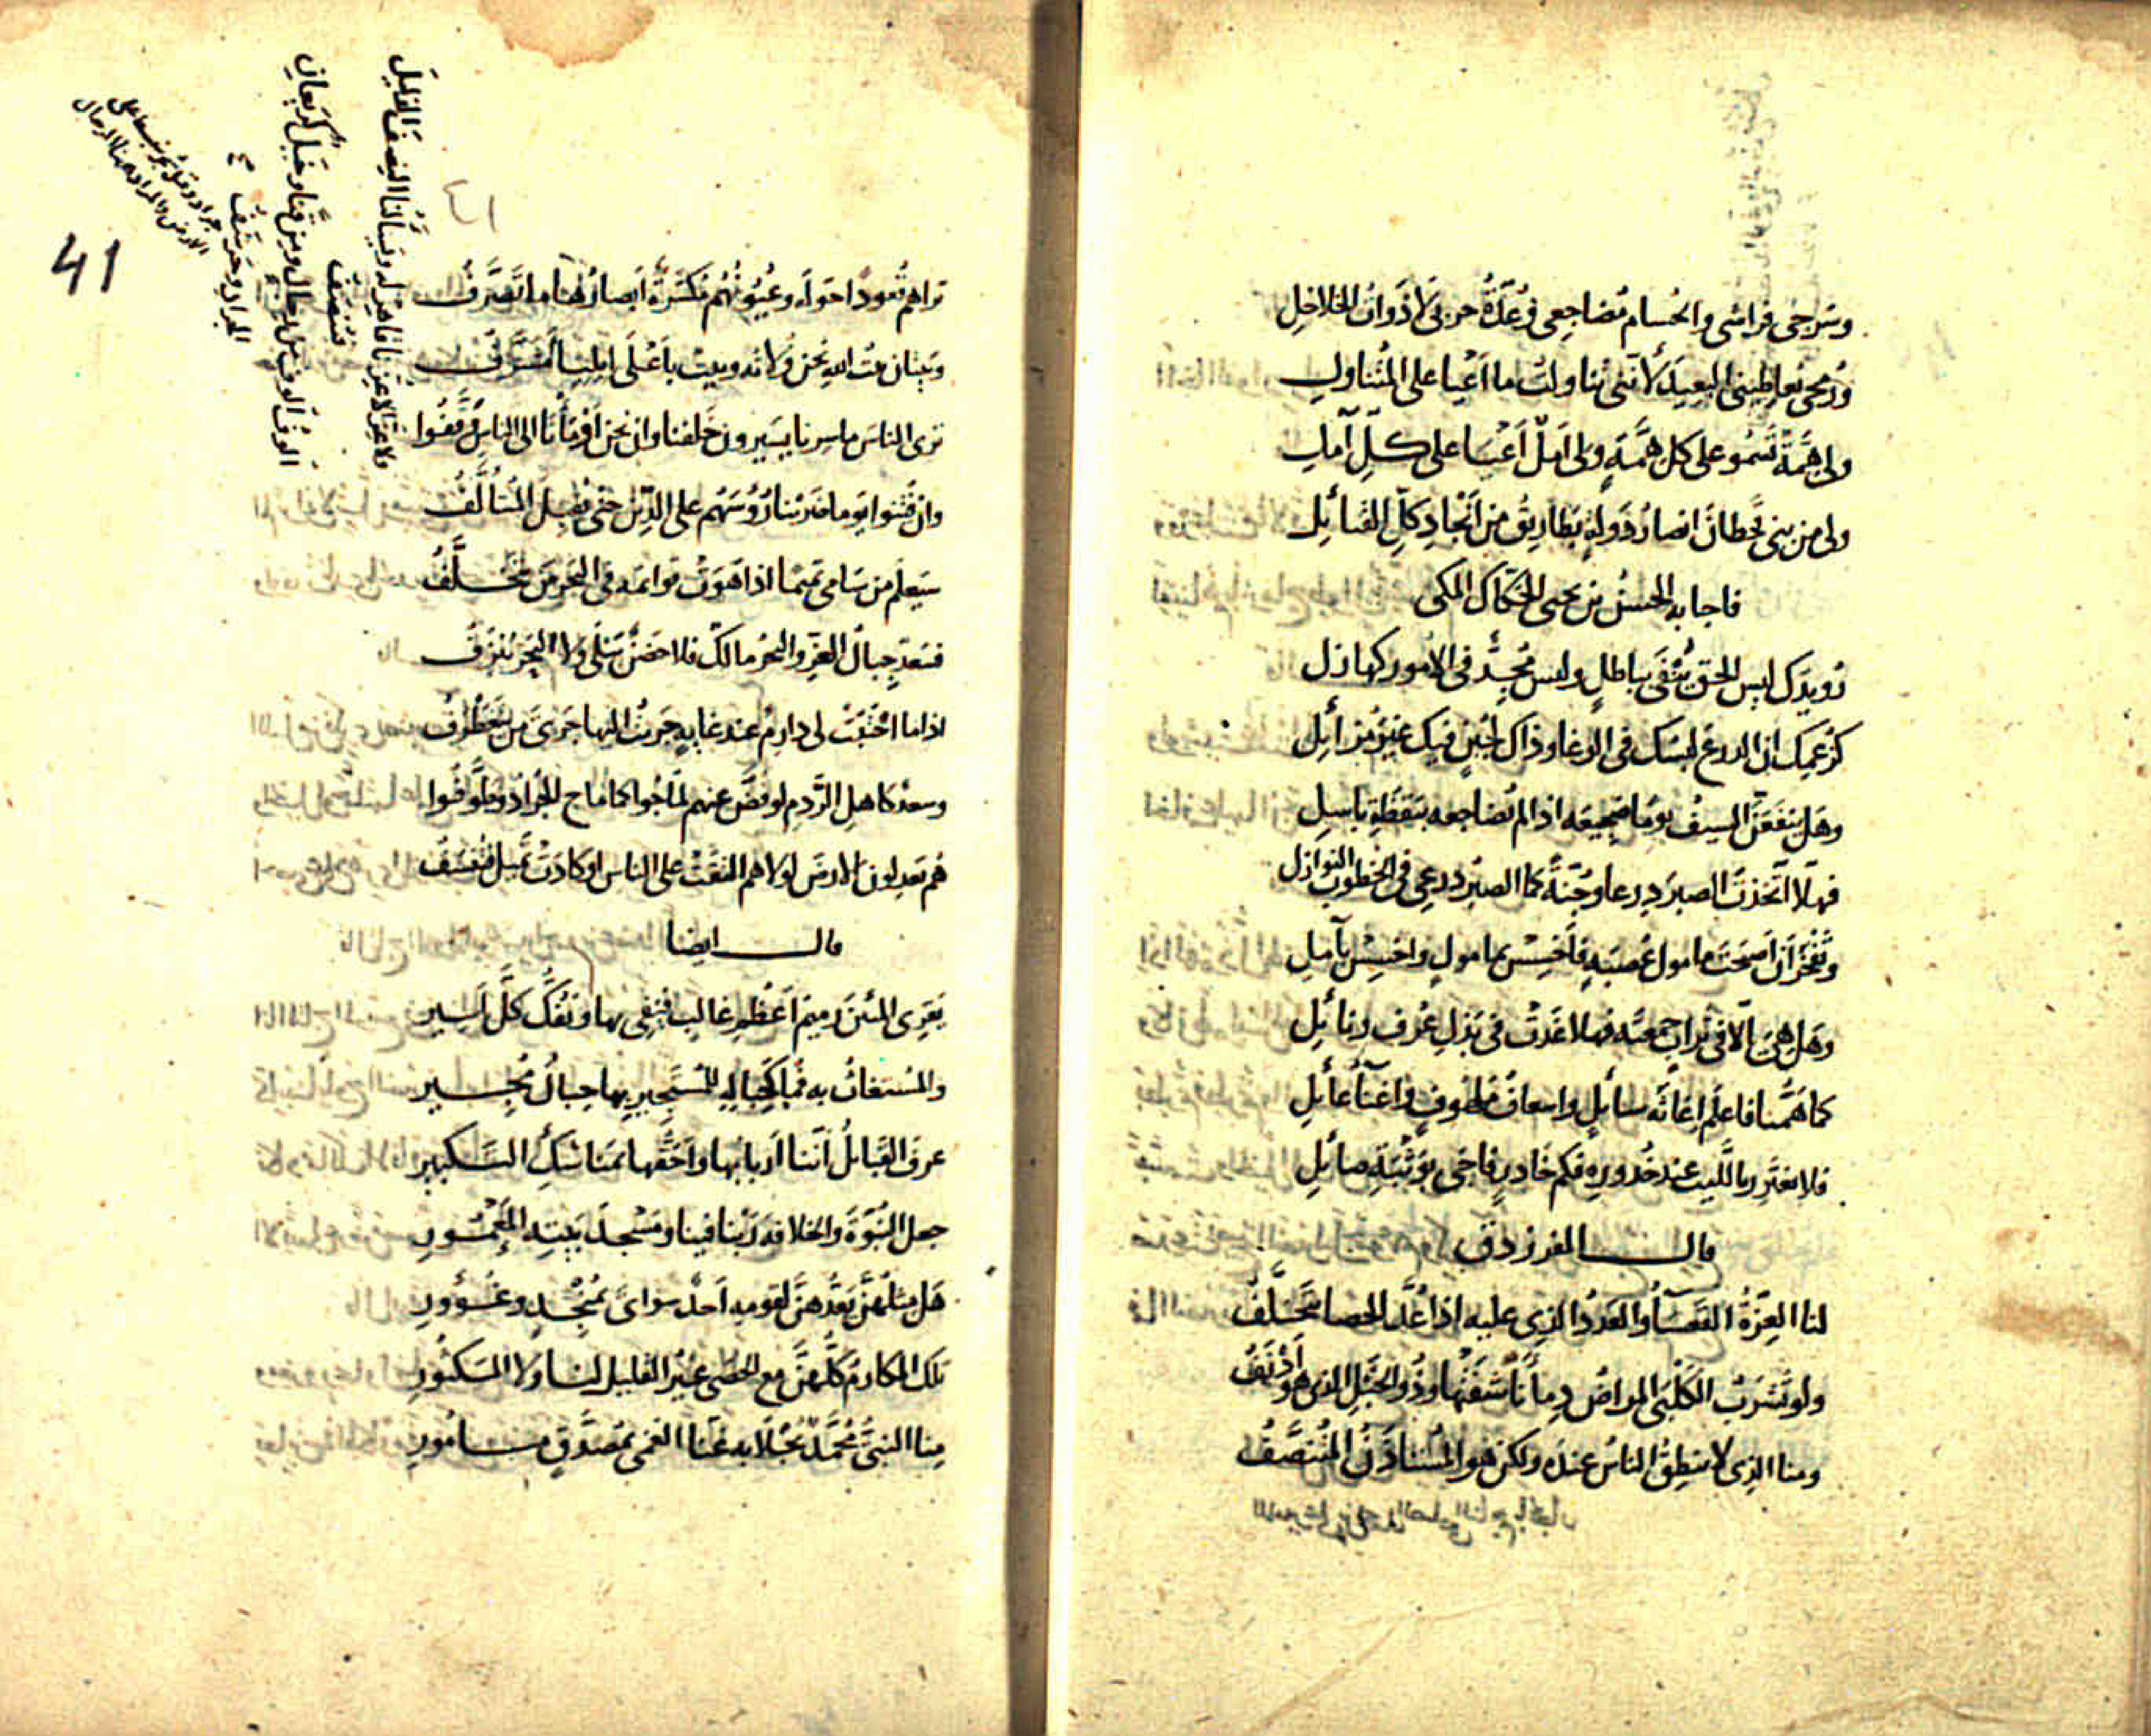 وسرجي فراشي والحسام مضاجعي وعدة حربي لا ذوات الخلاخل
ورمحي يعاطيني البعيد لأنني تناولت ما أعيا على المتناول
ولي همة تسمو على كل همة ولي أمل أعيا على كل آمل
ولي من بني قحطان انصار دولة بطاريق من أنجاد كل القبائل
فاجابه الحسن بن يحيى الحكاك المكي
رويدك ليس الحق ينفى بباطل وليس مجد في الأمور كهازل
كزعمك ان الدرع لبسك في الوغا وذاك لجبن فيك غير مزائل
وهل ينفعن السيف يوما ضجيعه اذا لم يضاجعه بيقظة باسل
فهلا اتخذت الصبر درعا وجنة كما الصبر درعي في الخطوب النوازل
وتفخر أن أصبحت مامول عصبة فأخسس بمامول واخسس بآمل
وهل هي الا في تراث جمعته فهلا غدت في بذل عرف ونائل
كما همنا فاعلم اغاثه سائل واسعاف ملهوف واغناء عائل
فلا تغترر بالليث عند خدوره فكم خادر فاجى بوثبة صائل
قال الفرزدق
لنا العزة القعساء والعدد الذي عليه اذا عد الحصا يتخلف
ولو تشرب الكلبى المراض دماءنا شفتها وذو الخبل الذي هو أدنف
ومنا الذي لا ينطق الناس عنده ولكن هو المستأذن المتنصف
٤١
41
تراهم قعودا حوله وعيونهم مكسرة أبصارها ما تصرف
وبيتان بيت الله نحن ولاته وبيت بأعلى ايلياء مشرف
ترى الناس ما سرنا يسيرون خلفنا وان نحن أومأنا الى الناس وقفوا
وان فتنوا يوما ضربنا رؤسهم على الدين حتى يقبل المتألف
سيعلم من سامى تميما اذا هوت قوائمه في البحر من يتخلف
فسعد جبال العز والبحر مالك فلا حضن يبلى ولا البحر ينزف
اذا ما احتبت لي دارم عند غاية جريت اليها جري من يتغطرف
وسعد كاهل الردم لو فض عنهم لماجوا كما ماج الجراد وطوفوا
هم يعدلون الارض لولاهم التقت على الناس او كادت تميل فتنسف
قال ايضا
يقري المئين رميم أعظم غالب فيفي بها ويفك كل اسير
والمستغاث به فما كحباله للمستجير بها حبال مجير
عرف القبائل أننا أربابها واحقها بمناسك التكبير
جعل النبوة والخلافة ربنا فينا ومسجد بيته المعمور
هل مثلهن يعدهن لقومه أحد سواي بمنجد وغوور
تلك المكارم كلهن مع الحصى غير القليل لنا ولا المكثور
منا النبي محمد يجلا به عنا العمى بمصدق مأمور
ولا عز الا عزنا قاهر له ويسألنا النصف الذليل
فننصف
الوف الوف من رجال ومن قنا وخيل كريعان
الجراد وحرشف